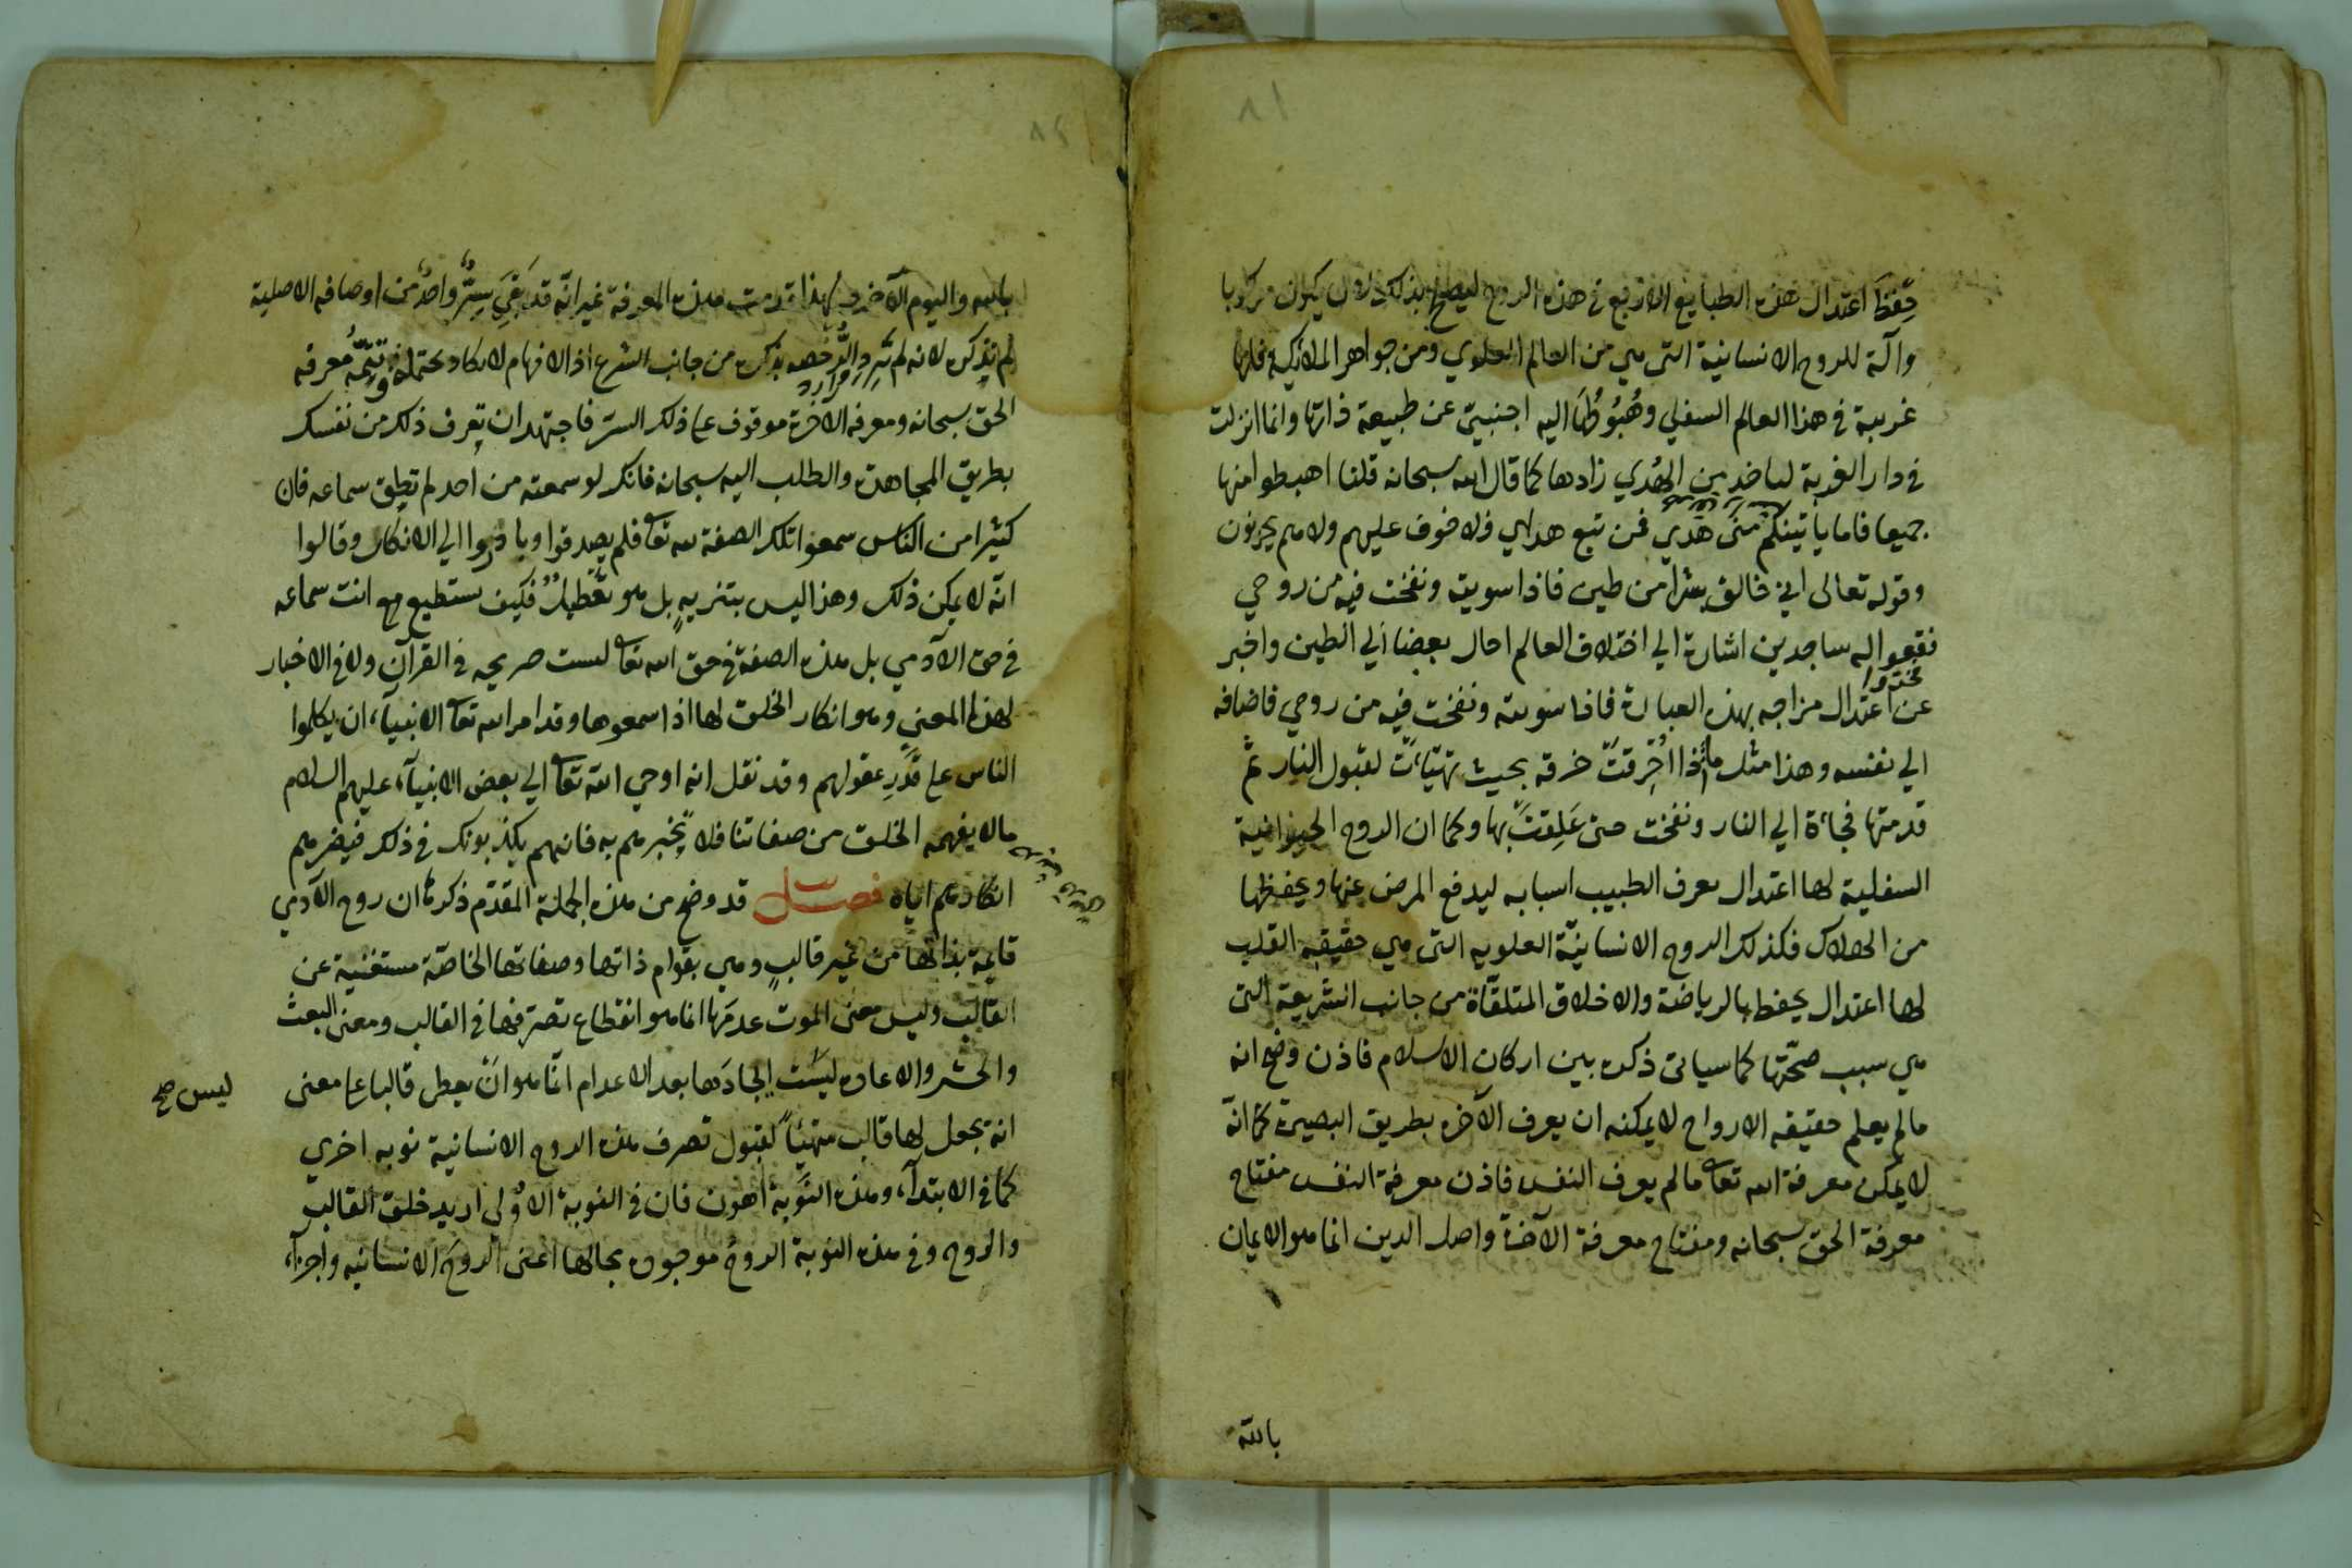 ٨١
حفظ اعتدال هذه الطبايع الاربع في هذه الروح ليصلح بذلك لان يكون مركوبا
وآلة للروح الانسانية التي هي من العالم العلوي ومن جواهر الملائكة فانها
غريبة في هذا العالم السفلي وهُبُوطُها اليه اجنبيّ عن طبيعة ذاتها وانما انزلت
في دار الغربة لتأخذ من الهُدي زادها كما قال الله سبحانه قلنا اهبطوا منها
جميعا فاما يأتينكم منى هدي فمن تبع هداي فلا خوف عليهم ولا هم يحزنون
وقوله تعالى اني خالق بشراً من طين فاذا سويته ونفخت فيه من روحي
فقعوا له ساجدين اشارة الي اختلاف العالم احال بعضها الي الطين واخبر
عن اعتدال مزاجه بهذه العبارة فاذا سويته ونفخت فيه من روحي فاضافه
الي نفسه وهذا مثل ما اذا احرقت خرقه بحيث تهيّأت لقبول النار ثم
قدمتها فجاءة الي النار ونفخت حتى عَلِقَتْ بها وكما ان الروح الحيوانية
السفلية لها اعتدال يعرف الطبيب اسبابه ليدفع المرض عنها ويحفظها
من الهلاك فكذلك الروح الانسانيّة العلويه التي هي حقيقه القلب
لها اعتدال يحفظ بالرياضة والاخلاق المتلقّاة من جانب الشريعة التي
هي سبب صحّتها كما سياتى ذكره بين اركان الاسلام فاذن وضح انه
مالم يعلم حقيقه الارواح لا يمكنه ان يعرف الآخره بطريق البصيرة كما انّه
لا يمكن معرفة الله تعا مالم يعرف النفس فاذن معرفة النفس مفتاح
معرفة الحق سبحانه ومفتاح معرفة الآخرة واصل الدين انما هو الايمان
بالله
٨٢
بالله واليوم الآخر ولهذا قدمت هذه المعرفة غير انّه قد بَقِيَ سِرٌّ واحدٌ من اوصافه الاصلية
لم نذكره لانه لم يَرِدِ الرُّخصه بذكره من جانب الشرع اذ الافهام لا تكاد تحتمله وتتمّةُ معرفه
الحق سبحانه ومعرفه الآخرة موقوف على ذلك السرّ فاجتهد ان تعرف ذلك من نفسك
بطريق المجاهدة والطلب اليه سبحانه فانك لو سمعته من احد لم تطق سماعه فان
كثيرا من الناس سمعوا تلك الصفة لله تعا فلم يصدقوا وبادروا الي الانكار وقالوا
انّه لا يمكن ذلك وهذا ليس بتنزيهٍ بل هو تعطيلٌ فكيف تستطيع انت سماعه
في حق الآدمي بل هذه الصفة في حق الله تعا ليست صريحه في القرآن ولا في الاخبار
لهذا المعني وهو انكار الخلق لها اذا سمعوها وقد امر الله تعا الانبيآء ان يكلموا
الناس على قَدْرِ عقولهم وقد نقل انه اوحي الله تعا الي بعض الانبيآء عليهم السلام
مالا يفهمه الخلق من صفاتنا فلا تخبرهم به فانهم يكذبونك في ذلك فيضرهم
انكارهم اياه فصل قد وضح من هذه الجملة المقدّم ذكرها ان روح الآدمي
قايمة بذاتها من غير قالبٍ وهي بقوام ذاتها وصفاتها الخاصّة مستغنية عن
القالب وليس معنى الموت عدمَها انما هو انقطاع تصرّفها في القالب ومعنى البعث
والحشر والاعاده ليست ايجادَها بعد الاعدام انّما هو انْ يعطى قالبا على معنى
ليس صح
انه يجعل لها قالب متهيّأً لقبول تصرف هذه الروح الانسانية نوبه اخري
كما في الابتدآء وهذه النَّوبة اهون فان في النوبة الاولى اريد خلق القالب
والروح وفي هذه النوبة الروحُ موجوده بحالها اعنى الروحَ الانسانيه واجزآء